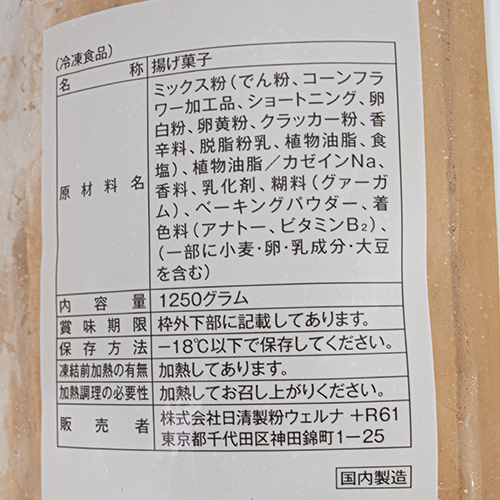 (冷凍食品)
名称 揚げ菓子
原材料名 ミックス粉(でん粉、コーンフラ
ワー加工品、ショートニング、卵
白粉、卵黄粉、クラッカー粉、香
辛料、脱脂粉乳、植物油脂、食
塩)、植物油脂/カゼインNa、
香料、乳化剤、糊料(グァーガ
ム)、ベーキングパウダー、着
色料(アナトー、ビタミンB₂)、
(一部に小麦・卵・乳成分・大豆
を含む)
内容量 1250グラム
賞味期限 枠外下部に記載してあります。
保存方法 -18℃以下で保存してください。
凍結前加熱の有無 加熱してあります。
加熱調理の必要性 加熱してお召し上がりください。
販売者 株式会社日清製粉ウェルナ +R61
東京都千代田区神田錦町1-25
国内製造